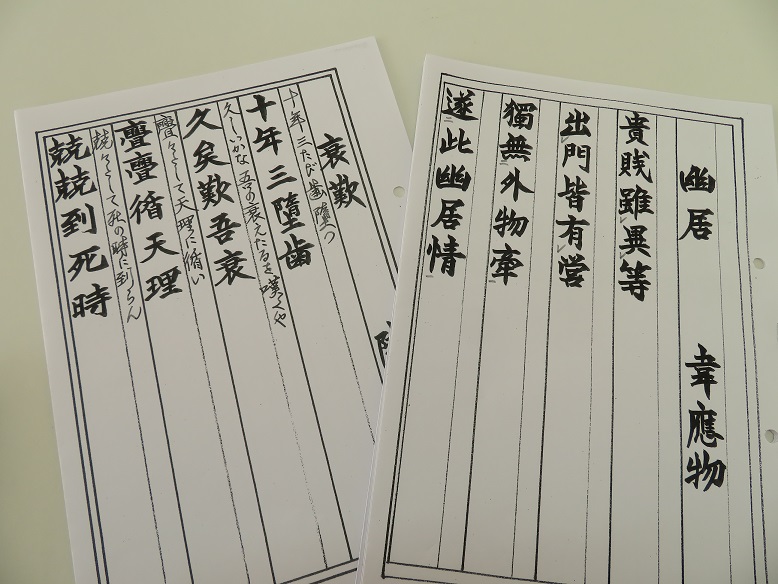 幽居 韋應物
貴賤雖異等
出門皆有営
獨無外物牽
遂此幽居情
衰歎
十年三たび歯墮つ
十年三墮歯
久しいかな吾の衰えたるを嘆くや
久矣歎吾衰
亹々として天理に循い
亹亹循天理
兢々として死の時に到らん
兢兢到死時